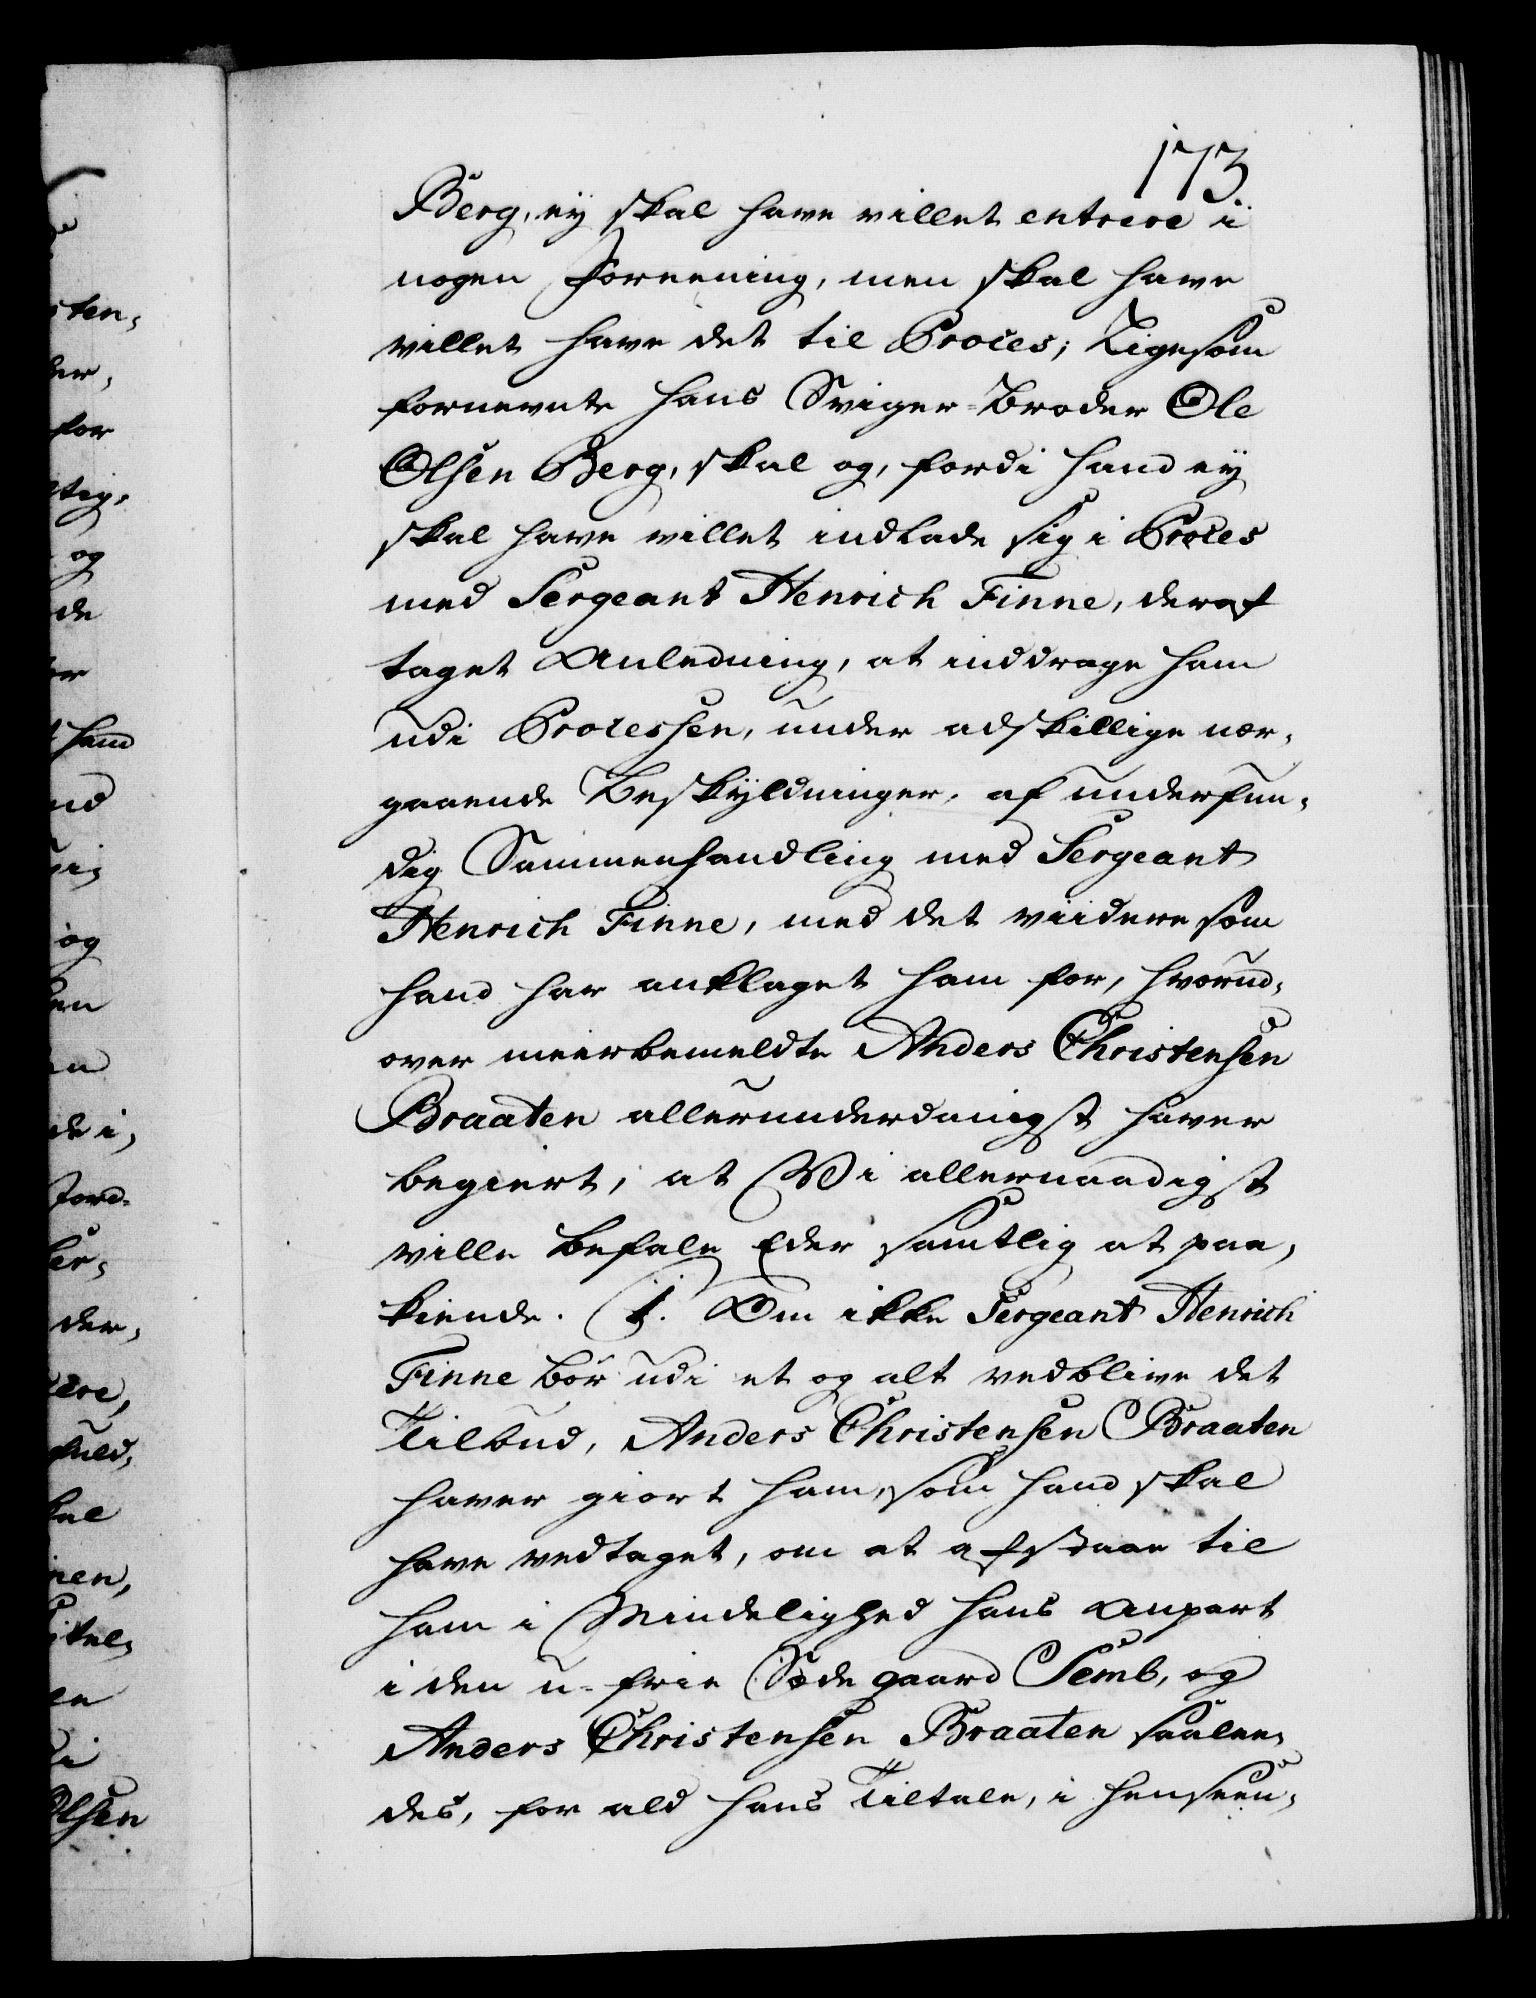 173
Berg, ey skal have villet entrere i
nogen Foreening, men skal have
villet have det til Proces; Ligesom
fornevnte hans Sviger-Broder Ole
Olsen Berg, skal og, fordi hand ey
skal have villet indlade sig i Proces
med Sergeant Henrich Finne, deraf
taget Anledning, at inddrage ham
udi Processen, under adskillige nær,
gaaende Beskyldninger, af underfun,
dig Sammenhandling med Sergeant
Henrich Finne, med det viidere som
hand har anklaget ham for, hvorud,
over meerbemeldte Anders Christensen
Braaten allerunderdanigst haver
begiert, at Vi allernaadigst
ville befale Eder samtlig at paa,
kiende. 1. Om ikke Sergeant Henrich
Finne bør udi et og alt vedblive det
Tilbud, Anders Christensen Braaten
haver giort ham, som hand skal
have vedtaget, om at afstaae til
ham i Mindelighed hans Anpart
i den u-frie Sæde gaard Semb, og
Anders Christensen Braaten saalee,
des, for ald hans Tiltale, i henseen,
sten,
der,
for
og
de
ham
og
de i,
der,
fuld,
Olsen